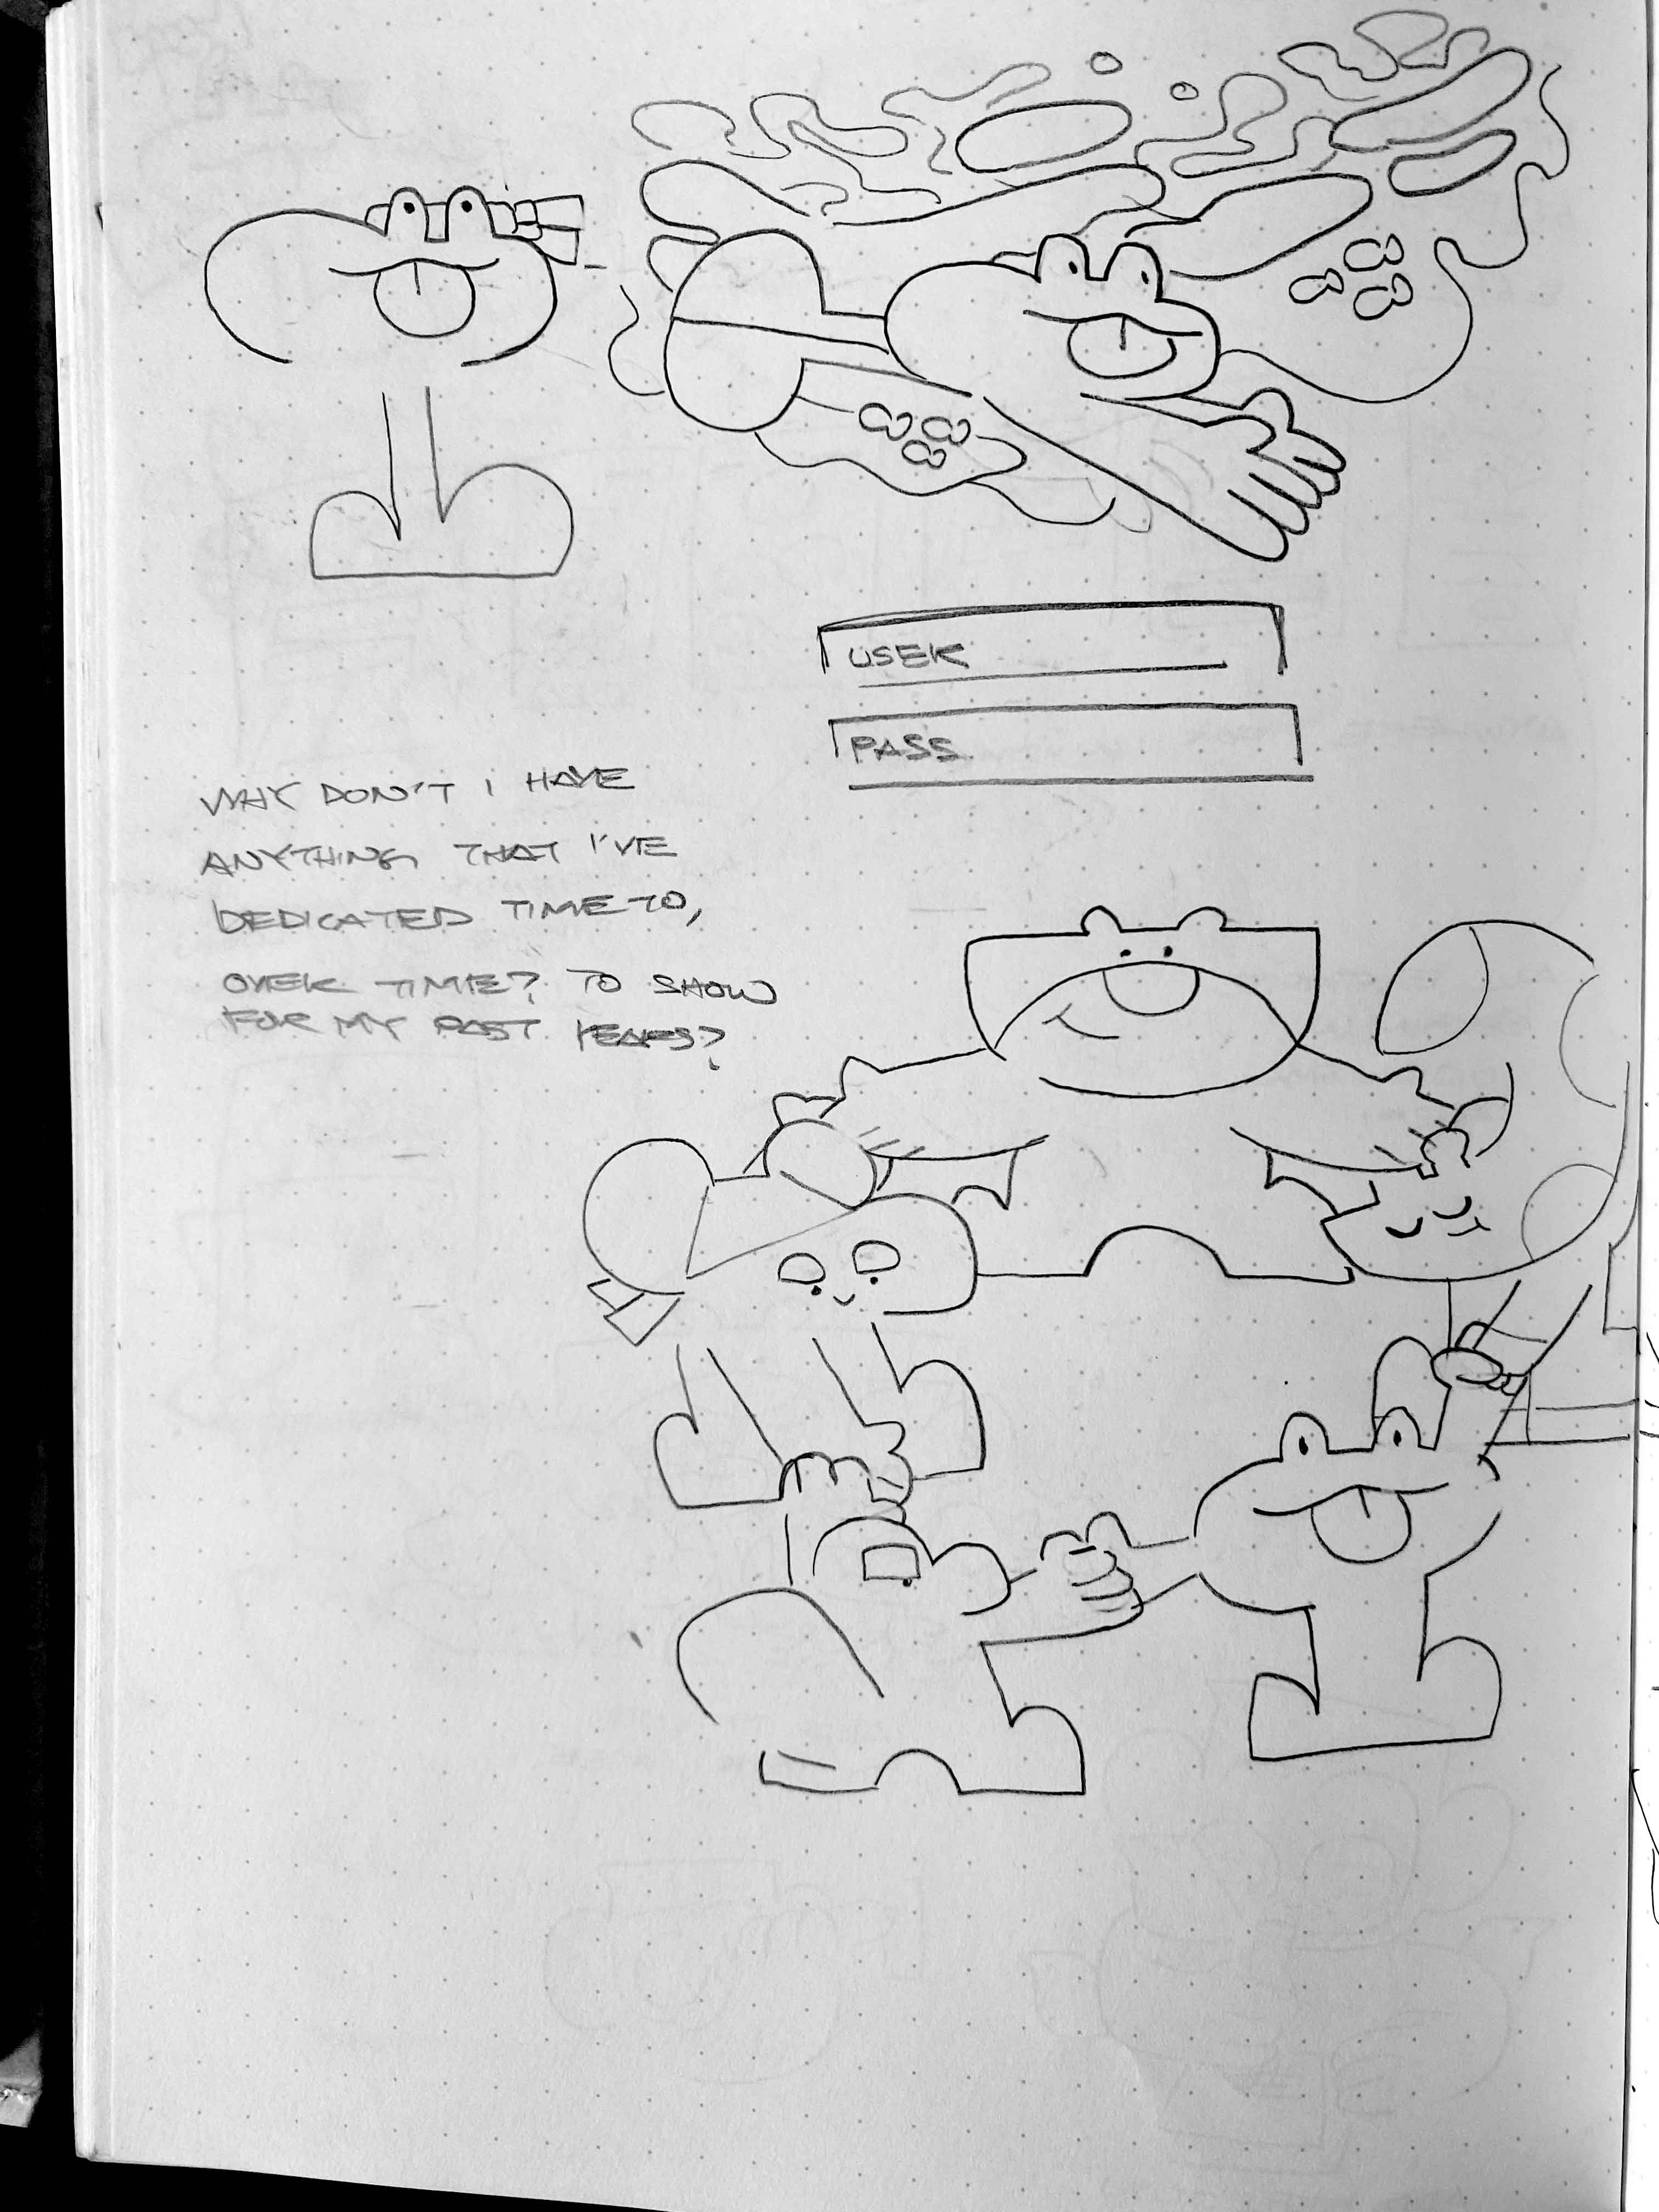 USER
PASS
WHY DON'T I HAVE
ANYTHING THAT I'VE
DEDICATED TIME TO,
OVER TIME? TO SHOW
FOR MY PAST YEARS?